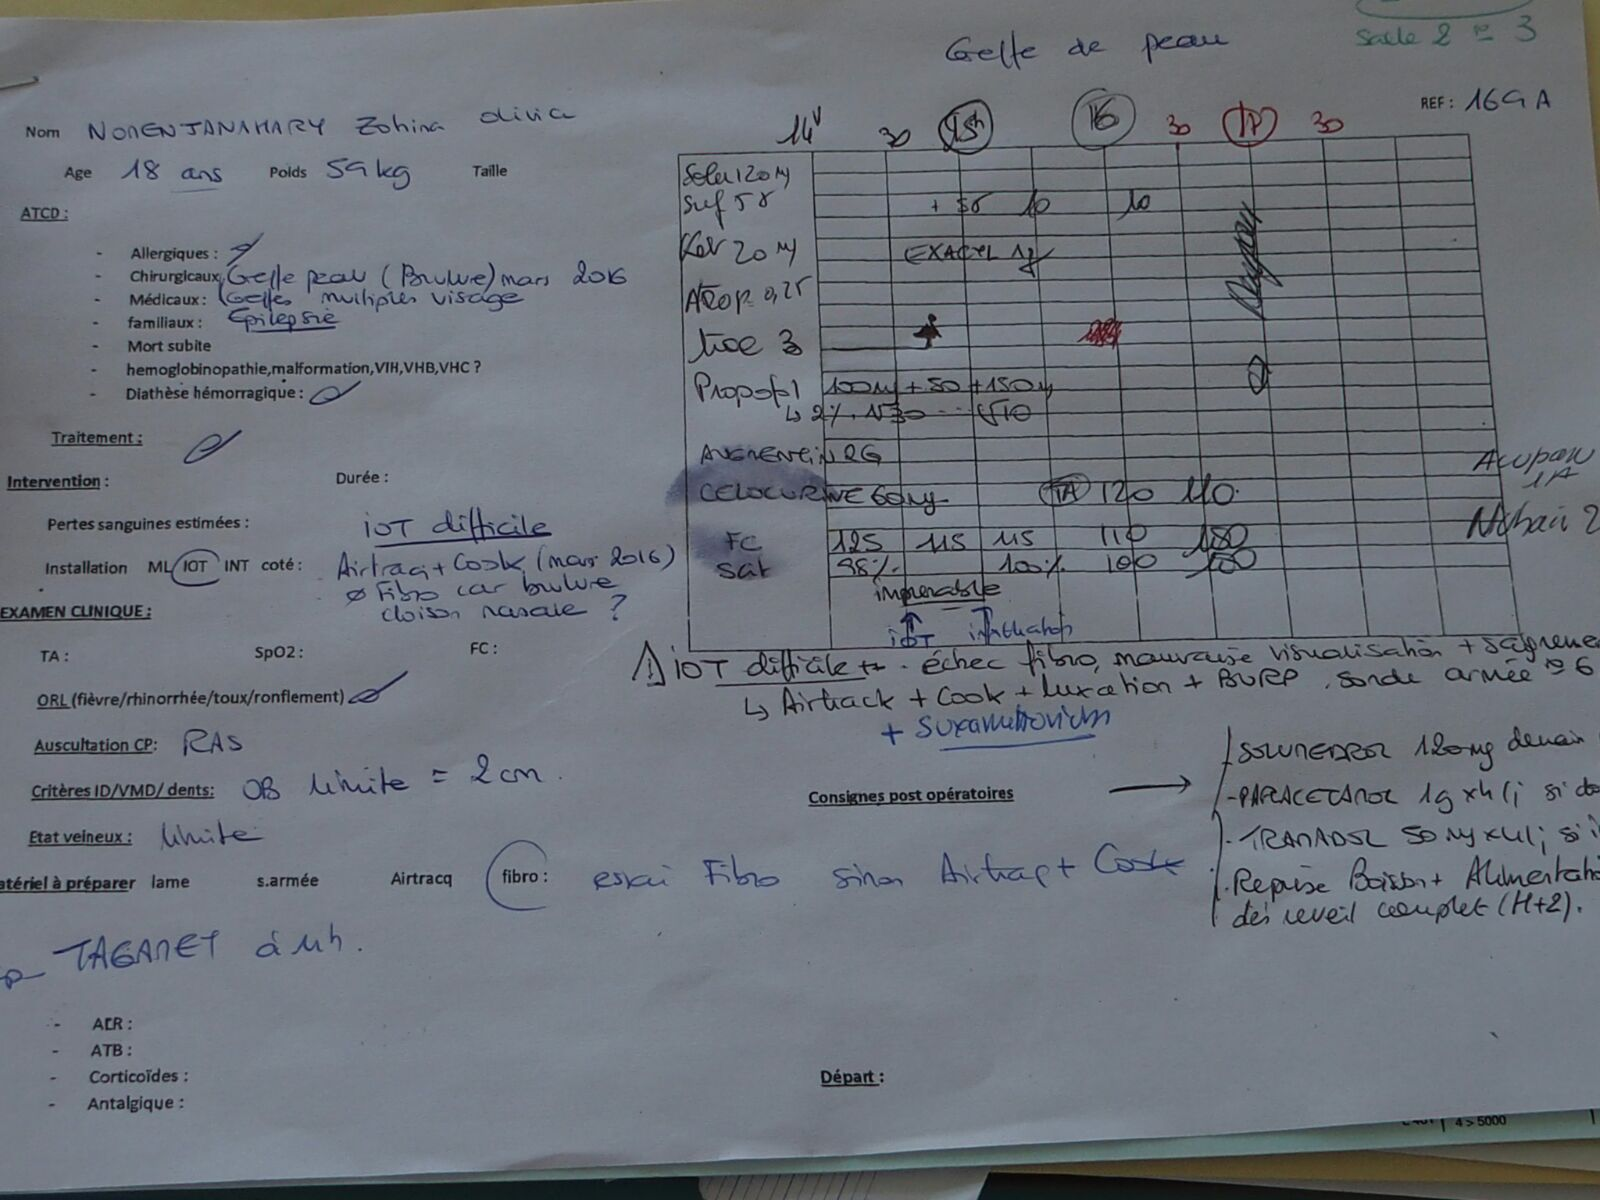 Greffe de peau
Salle 2 n° 3
REF : 16GA
Nom NOMENJANAHARY Zohina Olivia
Age 18 ans Poids 59 kg Taille
ATCD :
- Allergiques :
- Chirurgicaux Greffe peau (Brulure) mars 2016
- Médicaux : Greffes multiples visage
- familiaux : Epilepsie
- Mort subite
- hemoglobinopathie,malformation,VIH,VHB,VHC ?
- Diathèse hémorragique :
Traitement :
Intervention : Durée :
Pertes sanguines estimées : IOT difficile
Installation ML IOT INT coté : Airtraq + Cook (mars 2016)
Ø Fibro car brulure
cloison nasale ?
EXAMEN CLINIQUE :
TA : SpO2 : FC :
ORL (fièvre/rhinorrhée/toux/ronflement)
Auscultation CP: RAS
Critères ID/VMD/ dents: OB limite = 2 cm.
Etat veineux : limite
atériel à préparer lame s.armée Airtracq fibro : essai Fibro sinon Airtraq + Cook
TAGAMET à 11h.
- AER :
- ATB :
- Corticoïdes :
- Antalgique :
14h 30 15h 16 30 17 30
Solu 120 mg
Suf 5 γ + 5γ 10 10
Ket 20 mg EXACYL 1g
ATROP 0,25
Propofol 100mg + 50 + 150mg
↳ 2%
AUGMENTIN 2G
CELOCURINE 60mg TA 120 110
FC 125 115 115 110
Sat 98% 100% 100 100
imprenable
IOT intubation
Acupan 1A
IOT difficile ++ . échec fibro, mauvaise visualisation + saigneme
↳ Airtrack + Cook + luxation + BURP, sonde armée n° 6
+ Suxamethonium
Consignes post opératoires →
- SOLUMEDROL 120mg demain
- PARACETAMOL 1g x4/j si do
- TRAMADOL 50 mg x4/j si
. Reprise Boisson + Alimentati
dès reveil complet (H+2).
Départ :
4 > 5000